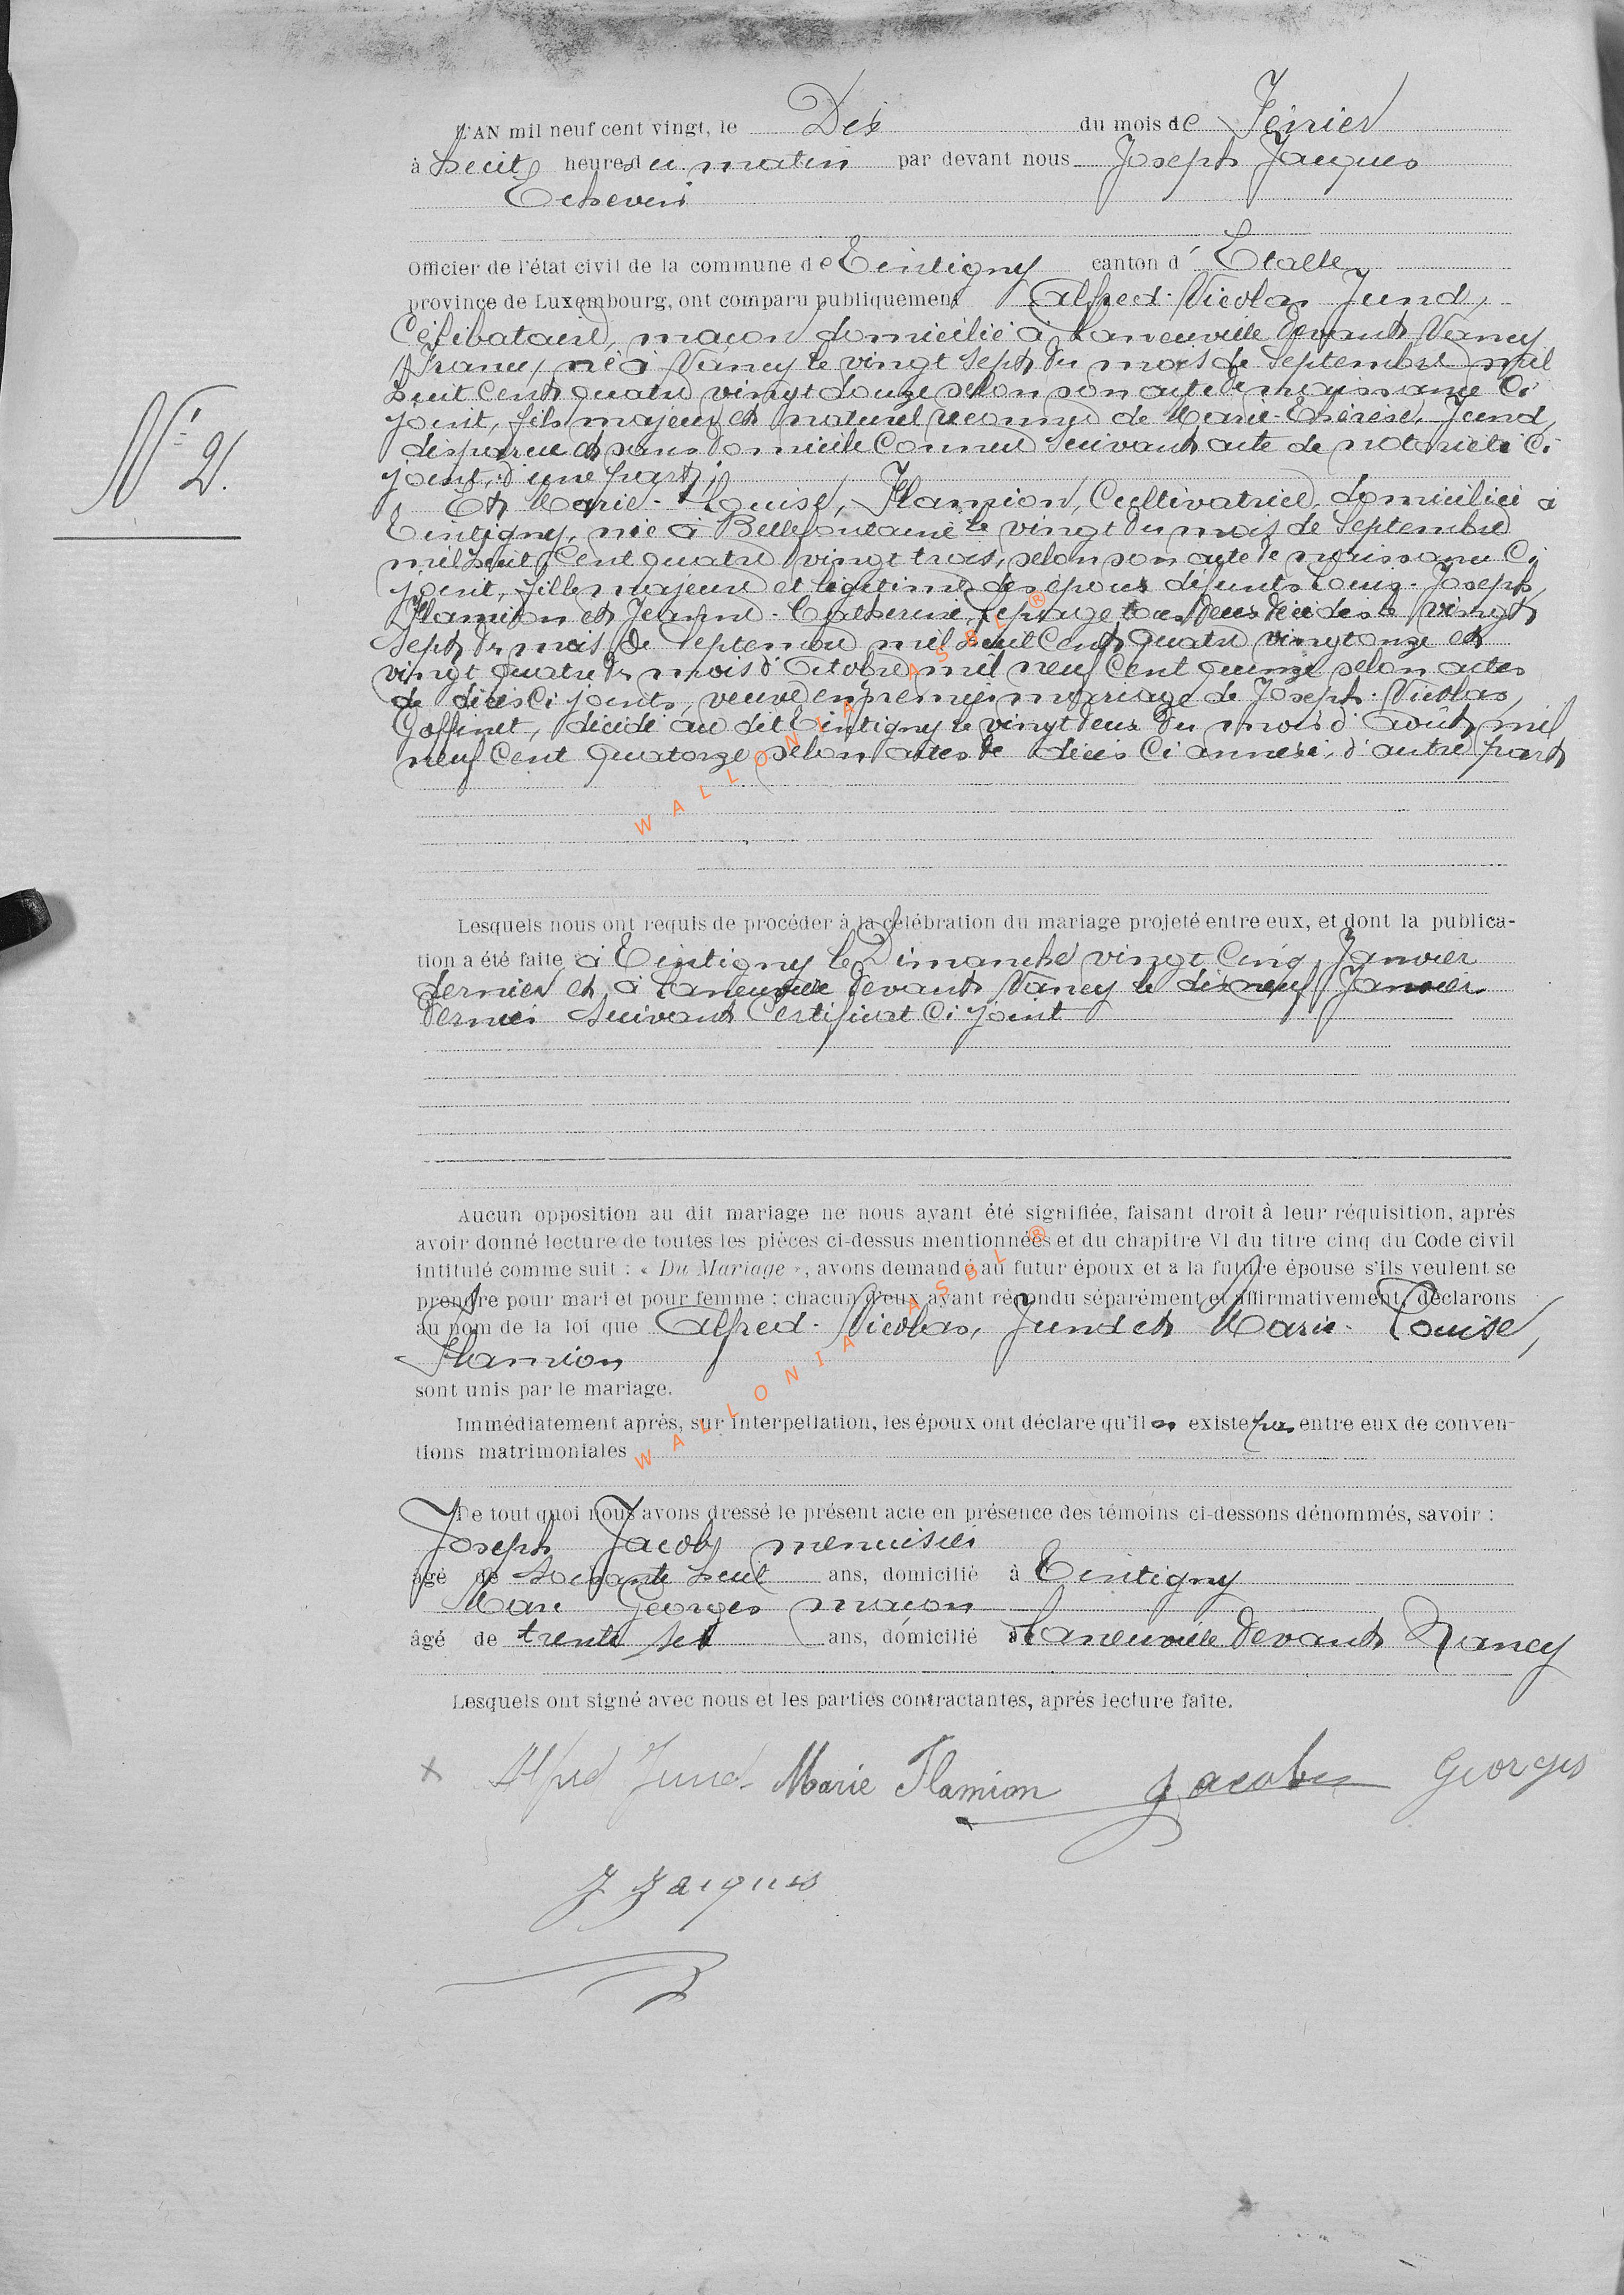 L'AN mil neuf cent vingt, le Dix du mois de Février
à huit heures du matin par devant nous Joseph Jacques
Echevin
Officier de l'état civil de la commune de Tintigny canton d' Etalle
province de Luxembourg, ont comparu publiquement Alfred-Nicolas Jund,
Célibataire, maçon domicilié à Laneuville devant Nancy
France, né à Nancy le vingt sept du mois de Septembre mil
huit cent quatre vingt douze selon son acte de naissance Ci
joint, fils majeur et naturel reconnu de Marie-Thérèse, Jund,
disparue et sans domicile Connu suivant acte de notoriété Ci
joint, d'une part;
Et Marie-Louise, Flamion, Cultivatrice, domiciliée à
Tintigny, née à Bellefontaine le vingt du mois de Septembre
mil huit Cent quatre vingt trois, selon son acte de naissance Ci
joint, fille majeure et légitime des époux défunts Louis-Joseph,
Flamion et Jeanne-Catherine, Lepage tous deux décédés le vingt
sept du mois de Septembre mil huit Cent quatre vingt onze et
vingt quatre du mois d'Octobre mil neuf Cent quinze selon actes
de décès Ci joints, veuve en premier mariage de Joseph-Nicolas,
Goffinet, décédé au dit Tintigny le vingt deux du mois d'Août mil
neuf Cent quatorze selon actes de décès Ci annexé, d'autre part
Lesquels nous ont requis de procéder à la célébration du mariage projeté entre eux, et dont la publica-
tion a été faite à Tintigny le Dimanche vingt Cinq Janvier
dernier et à Laneuville devant Nancy le dix neuf Janvier
dernier suivant Certificat Ci joint
Aucun opposition au dit mariage ne nous ayant été signifiée, faisant droit à leur réquisition, après
avoir donné lecture de toutes les pièces ci-dessus mentionnées et du chapitre VI du titre cinq du Code civil
intitulé comme suit : « Du Mariage », avons demandé au futur époux et a la future épouse s'ils veulent se
prendre pour mari et pour femme : chacun d'eux ayant répondu séparément et affirmativement, déclarons
au nom de la loi que Alfred-Nicolas, Jund et Marie-Louise,
Flamion
sont unis par le mariage.
Immédiatement après, sur interpellation, les époux ont déclare qu'il n' existe pas entre eux de conven-
tions matrimoniales
De tout quoi nous avons dressé le présent acte en présence des témoins ci-dessons dénommés, savoir :
Joseph Jacob menuisier
âgé de soixante huit ans, domicilié à Tintigny
Marc Georges maçon
âgé de trente six ans, domicilié à Laneuville devant Nancy
Lesquels ont signé avec nous et les parties contractantes, après lecture faite.
N° 2.
x Alfred Jund Marie Flamion Jacob Georges
J Jacques
WALLONIA ASBL ®
WALLONIA ASBL ®